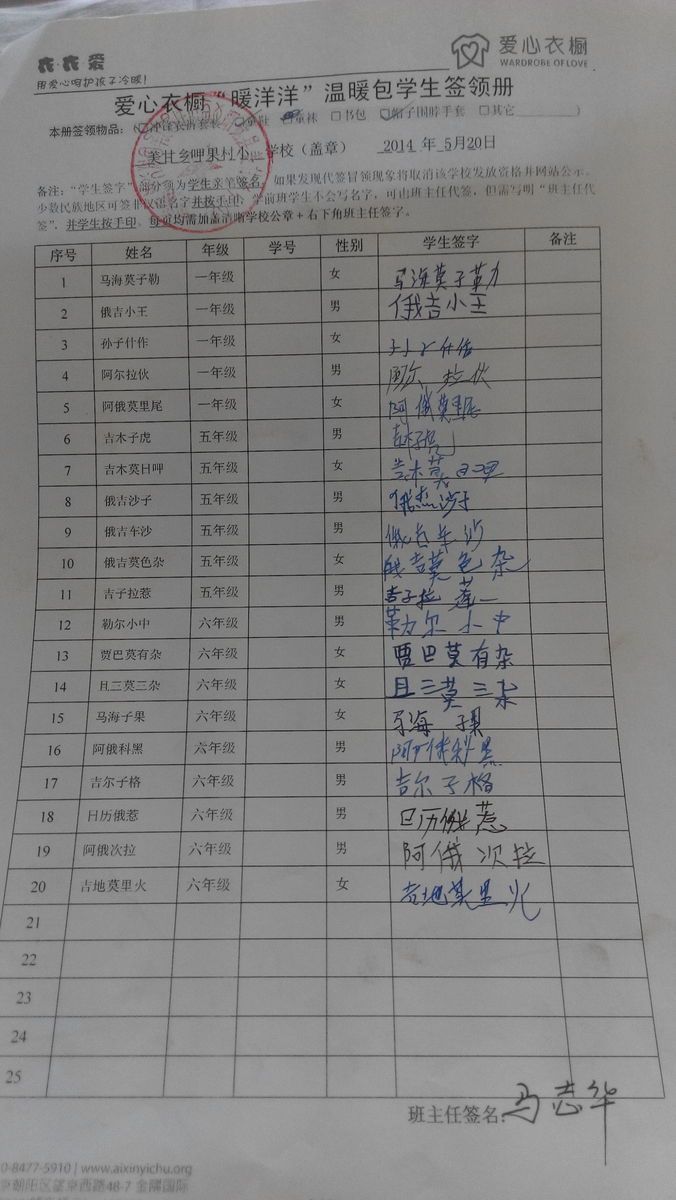 衣·衣·爱
用爱心呵护孩子冷暖!
爱心衣橱
WARDROBE OF LOVE
爱心衣橱“暖洋洋”温暖包学生签领册
本册签领物品: 童鞋 童袜 □书包 帽子围脖手套 □其它________)
美甘乡呷果村小 学校（盖章） 2014 年 5月20日
备注：“学生签字”部分须为学生亲笔签名，如果发现代签冒领现象将取消该学校发放资格并网站公示。
少数民族地区可签非汉语名字并按手印，学前班学生不会写名字，可由班主任代签，但需写明“班主任代
签”，并学生按手印。每页均需加盖清晰学校公章+右下角班主任签字。
序号 姓名 年级 学号 性别 学生签字 备注
1 马海莫子勒 一年级 女 马海莫子勒
2 俄吉小王 一年级 男 俄吉小王
3 孙子什作 一年级 女 孙子什作
4 阿尔拉伙 一年级 男 阿尔拉伙
5 阿俄莫里尾 一年级 女 阿俄莫里尾
6 吉木子虎 五年级 男 吉木子虎
7 吉木莫日呷 五年级 女 吉木莫日呷
8 俄吉沙子 五年级 男 俄杰沙子
9 俄吉车沙 五年级 男 俄吉车沙
10 俄吉莫色杂 五年级 女 俄吉莫色杂
11 吉子拉惹 五年级 男 吉子拉
12 勒尔小中 六年级 男 勒尔小中
13 贾巴莫有杂 六年级 女 贾巴莫有杂
14 且三莫三杂 六年级 女 且三莫三杂
15 马海子果 六年级 女 马海子果
16 阿俄科黑 六年级 男 阿俄科黑
17 吉尔子格 六年级 男 吉尔子格
18 日历俄惹 六年级 男 日历俄惹
19 阿俄次拉 六年级 男 阿俄次拉
20 吉地莫里火 六年级 女 吉地莫里火
21
22
23
24
25
班主任签名: 马志华
0-8477-5910 | www.aixinyichu.org
京朝阳区望京西路48-7 金隅国际